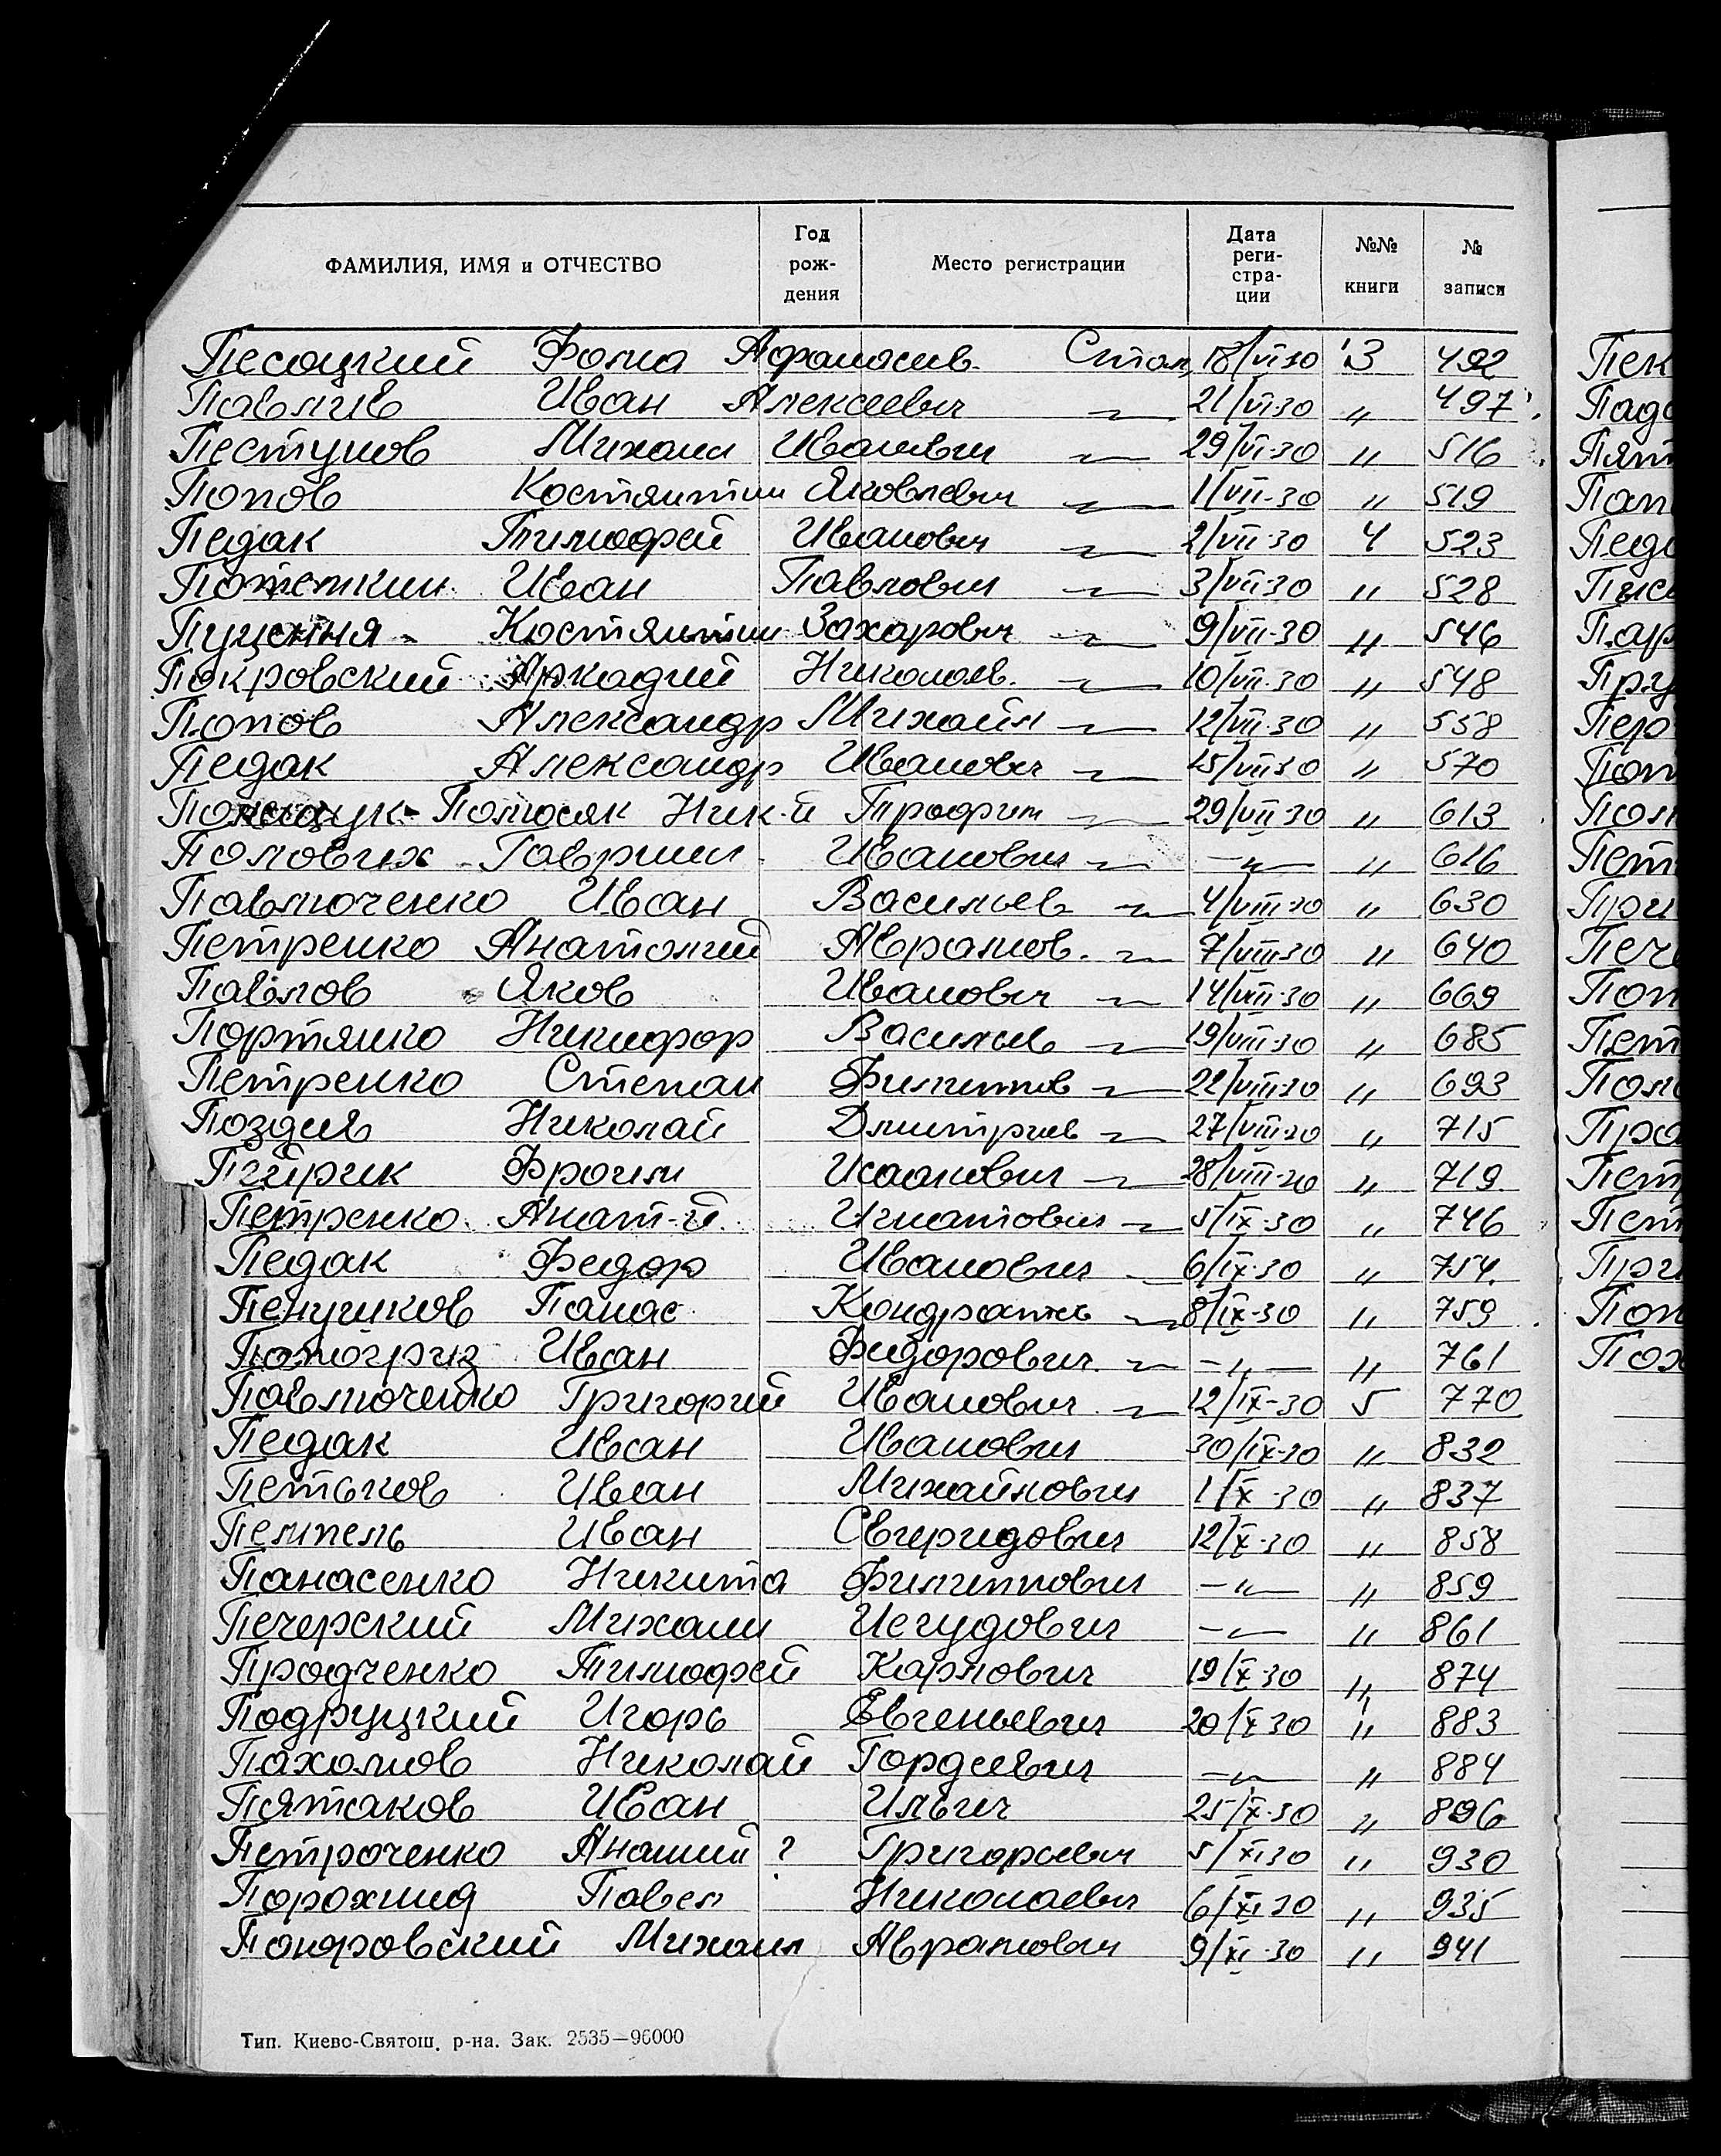 ФАМИЛИЯ, ИМЯ и ОТЧЕСТВО Год рождения Место регистрации Дата регистрации №№ книги № записи
Песоцкий Фома Афанасьев. Стал. 18/VI 30 3 492
Павлив Иван Алексеевич —"— 21/VI-30 " 497
Пестунов Михаил Иванович —"— 29/VI-30 " 516
Попов Костянтин Яковлевич —"— 1/VII-30 " 519
Педак Тимофей Иванович —"— 2/VII-30 4 523
Потемкин Иван Павлович —"— 3/VII-30 " 528
Костянтин Захарович —"— 9/VII-30 " 546
Покровский Аркадий Николаев. —"— 10/VII-30 " 548
Попов Александр Михайл —"— 12/VII-30 " 558
Педак Александр Иванович —"— 15/VII 30 " 570
Ник-й Трофим —"— 29/VII-30 " 613
Половых Гавриил Иванович —"— —"— " 616
Павлюченко Иван Васильев —"— 4/VIII-30 " 630
Петренко Анатолий Аврамов. —"— 7/VIII-30 " 640
Павлов Яков Иванович —"— 14/VIII-30 " 669
Портянко Никифор Васильев —"— 19/VIII-30 " 685
Петренко Степан Филиппов —"— 22/VIII-30 " 693
Николай Дмитриев —"— 27/VIII-30 " 715
Фроим Исаакович —"— 28/VIII-30 " 719
Петренко Анат-й Игнатович —"— 5/IX-30 " 746
Педак Федор Иванович —"— 6/IX-30 " 754
Панас Кондратьев —"— 8/IX-30 " 759
Иван Федорович —"— —"— " 761
Павлюченко Григорий Иванович —"— 12/IX-30 5 770
Педак Иван Иванович 30/IX-30 " 832
Петьков Иван Михайлович 1/X-30 " 837
Пемпель Иван Свиридович 12/X-30 " 858
Панасенко Никита Филиппович —"— " 859
Печерский Михаил Иегудович —"— " 861
Продченко Тимофей Карпович 19/X-30 " 874
Подруцкий Игорь Евгеньевич 20/X-30 " 883
Пахомов Николай Гордеевич —"— " 884
Пятаков Иван Ильич 25/X-30 " 896
Петроченко Ананий ? Григорьевич 5/XI 30 " 930
Павел Николаевич 6/XI 30 " 935
Михаил Аврамович 9/XI-30 " 941
Тип. Киево-Святош. р-на. Зак. 2535—96000